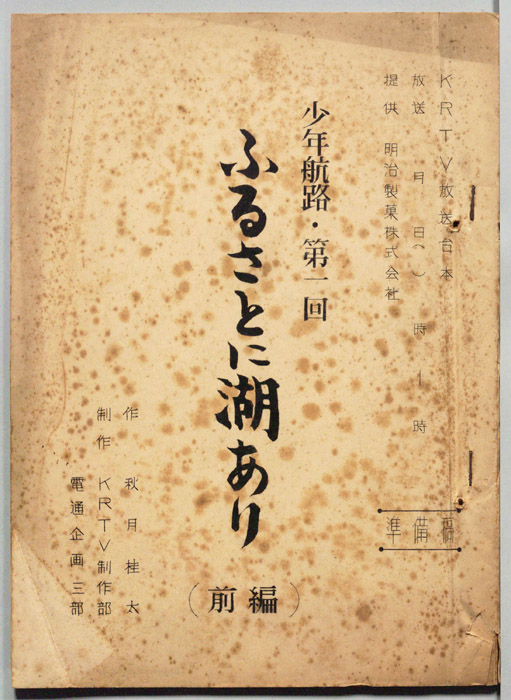 KRTV放送台本
放送 月 日( ) 時―時
提供 明治製菓株式会社
準備稿
少年航路・第一回
ふるさとに湖あり
(前編)
作 秋月桂太
制作 KRTV制作部
電通企画三部